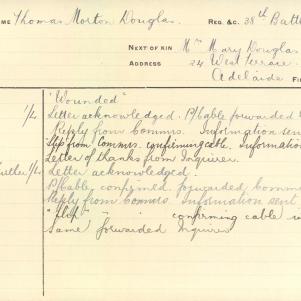 ME Thomas Morton Douglas. REG. &c. 38th Batt
NEXT OF KIN Mrs Mary Douglas
ADDRESS 24 West Terrace
Adelaide FI
"Wounded"
1/4 Letter acknowledged. P/Cable forwarded
Reply from Commrs. Information sen
Slip from Commrs. confirming cable. Information
Letter of thanks from Inquirer
1/4 Letter acknowledged.
P/Cable, confirmed, forwarded, Comm
Reply from Commrs. Information sent
"Slip" " confirming cable
Same forwarded Inquirer